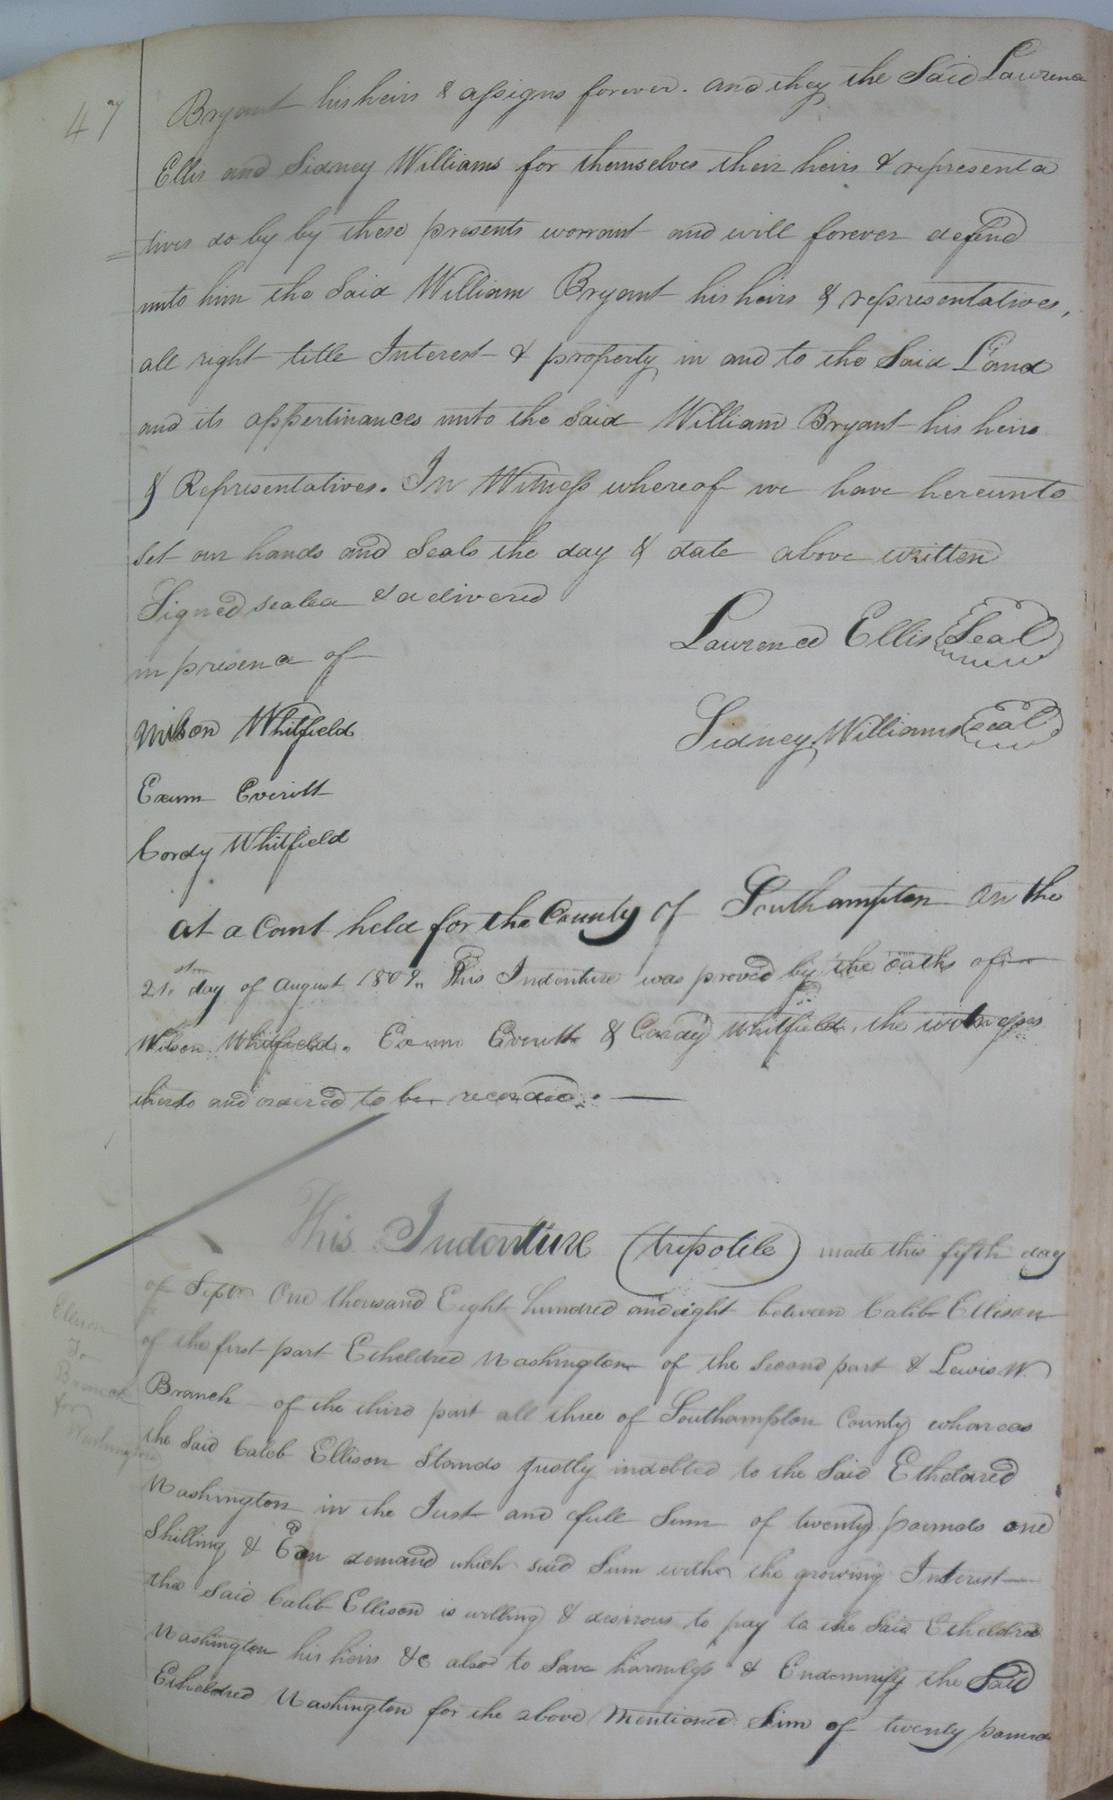 47
Bryant his heirs & assigns forever. and they the Said Lawrence
Ellis and Sidney Williams for themselves their heirs & representa
= tives do by by these presents warrant and will forever defend
unto him the Said William Bryant his heirs & representatives,
all right title Interest & property in and to the Said Land
and its appertinances unto the Said William Bryant his heirs
& Representatives. In Witness whereof we have hereunto
set our hands and Seals the day & date above written
Signed sealed & delivered
in presence of
Lawrence Ellis Seal
Sidney Williams Seal
Wilson Whitfield
Exum Everitt
Cordy Whitfield
At a Court held for the County of Southampton on the
21st day of August 1809. This Indenture was proved by the oaths of
Wilson Whitfield. Exum Everitt & Cordy Whitfield the witnesses
thereto and ordered to be recorded. —
This Indenture (tripotile) made this fifth day
of Septr One thousand Eight hundred and eight between Caleb Ellison
of the first part Etheldred Washington of the Second part & Lewis W.
Branch of the third part all three of Southampton County whereas
the Said Caleb Ellison Stands Justly indebted to the Said Etheldred
Washington in the Just and full Sum of twenty pounds one
Shilling & on demand which said Sum with the growing Interest
the Said Caleb Ellison is willing & desirous to pay to the Said Etheldred
Washington his heirs &c also to Save harmless & Endemnify the Said
Etheldred Washington for the above Mentioned Sum of twenty pounds
Ellison
To
Branch
for
Washington